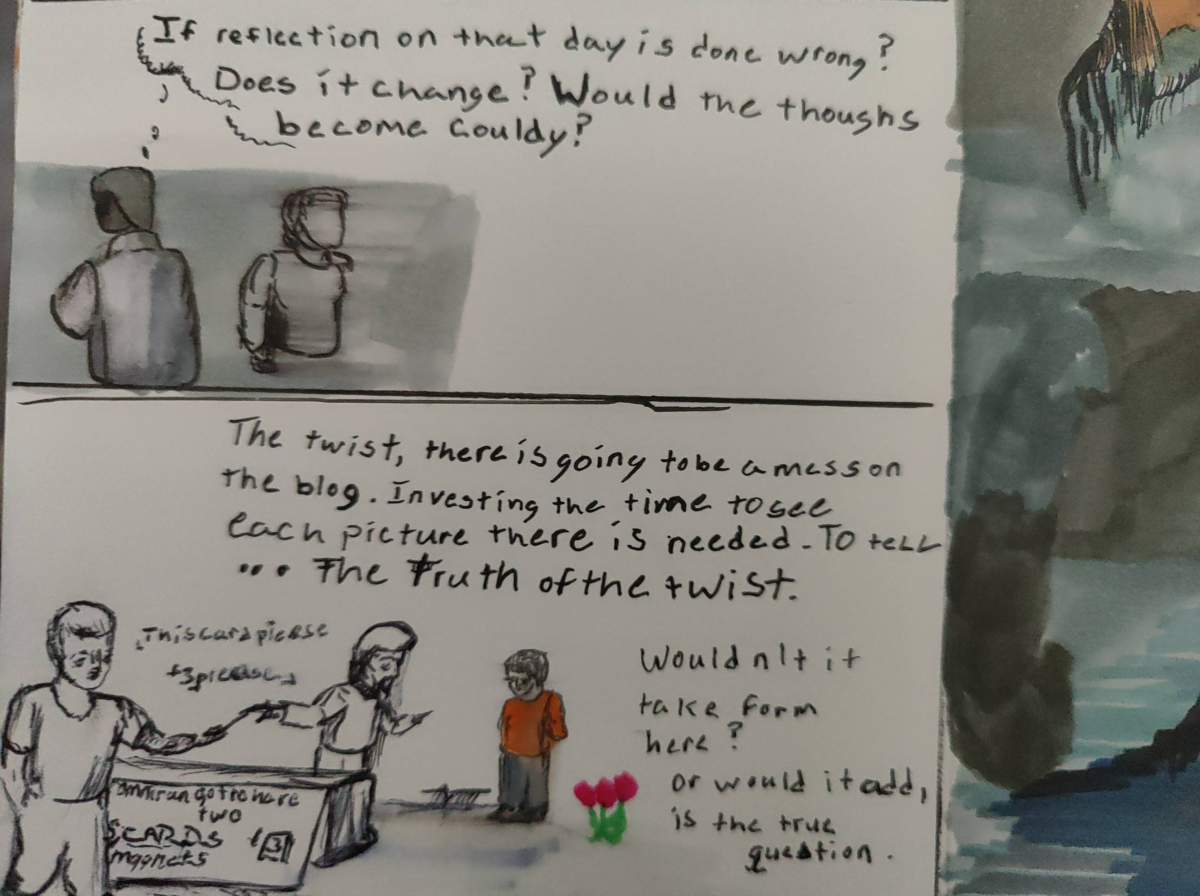 If reflection on that day is done wrong?
Does it change? Would the thoughs
become Couldy?
The twist, there is going to be a mess on
the blog. Investing the time to see
each picture there is needed. To tell
... The Truth of the twist.
This card please
$3 please
Wouldn't it
take form
here?
or would it add,
is the true
question.
two
CARDS
magnets